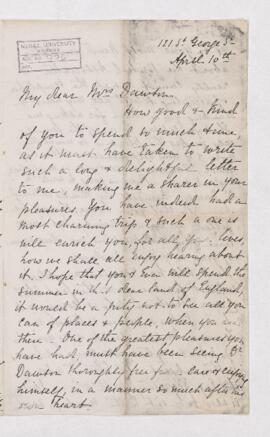 McGILL UNIVERSITY
ARCHIVES
ACC. NO.
REF.
121 St. George St
April 10th
My dear Mrs Dawson
How good & kind
of you to spend so much time,
as it must have taken to write
such a long & delightful letter
to me, making me a sharer in your
pleasures. You have indeed had a
most charming trip & such a one as
will enrich you, for all your lives,
how we shall all enjoy hearing about
it. I hope that you & Eva will spend the
summer in that dear land of England,
it would be a pity not to see all you
can of places & people, when you are
there. One of the greatest pleasures you
have had, must have been seeing Dr
Dawson thoroughly free from care & enjoying
himself, in a manner so much after his
own heart.